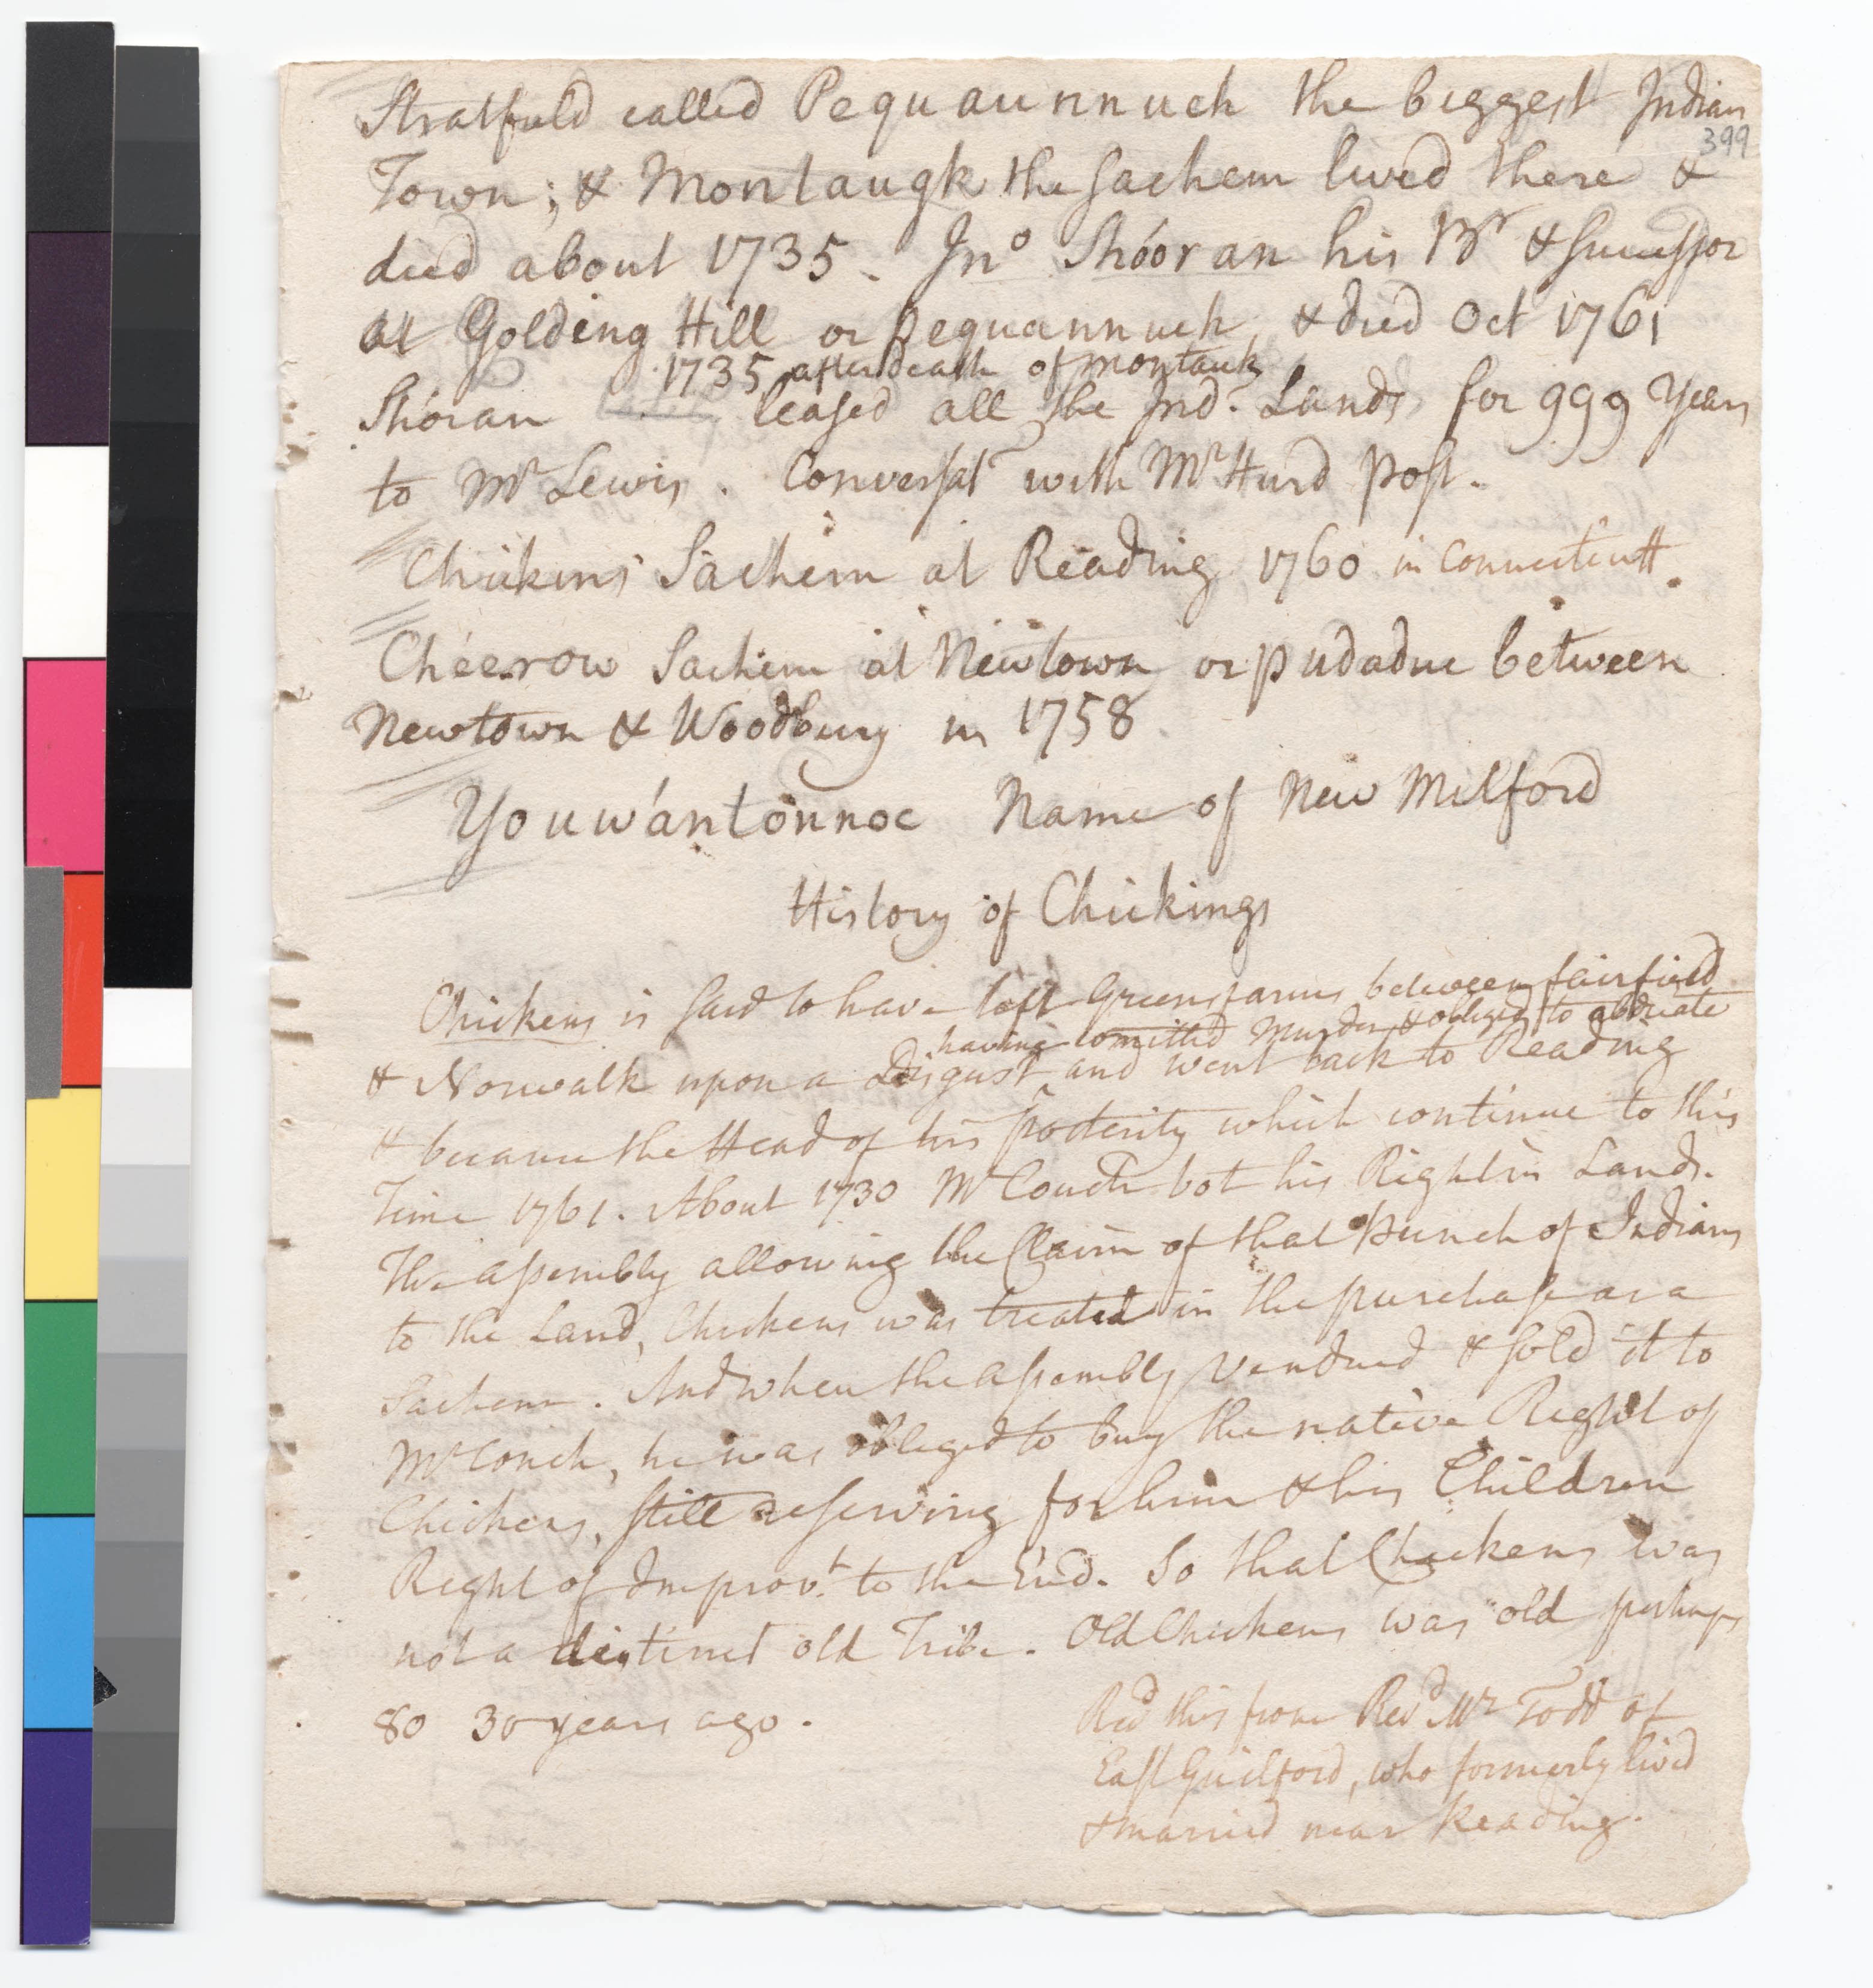 Stratfield called Pequaunnuck the biggest Indian
399
Town; & Montaugk the Sachem lived there &
died about 1735. Jno Shóoran his Br & Successor
at Golding Hill or Pequannuck, & died Oct 1761
1735 after death of Montauk
Shóran leased all the Ind. Lands for 999 Years
to Mr Lewis. Conversat with Mr Hurd Post.
Chickens Sachem at Reading 1760 in Connecticutt.
Chéerow Sachem at Newtown or pudadne between
Newtown & Woodbury in 1758
Youwántonnoc Name of New Milford
History of Chickings
Chickens is said to have left Greensfarms between fairfield
having comitted Murder & obliged to abdicate
& Norwalk upon a Disgust and went back to Reading
& became the Head of his posterity which continue to this
Time 1761. About 1730 Mr Couch bot his Right in Lands.
The assembly allowing the Claim of that Bunch of Indians
to the Land, Chickens was treated in the purchase as a
Sachem. And when the assembly vendued & sold it to
Mr Couch, he was obliged to buy the native Right of
Chickens, still reserving for him & his Children
Right of Improvt. to the End. So that Chickens was
not a distinct old Tribe. Old Chickens was old perhaps
80 30 years ago.
Recd this from Revd Mr Todd of
East Guilford, who formerly lived
& married near Reading.